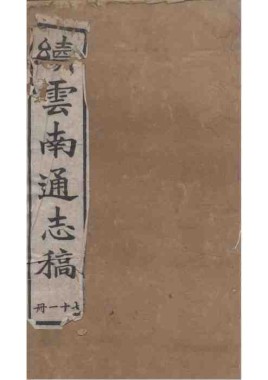 續雲南通志稿
七十一冊